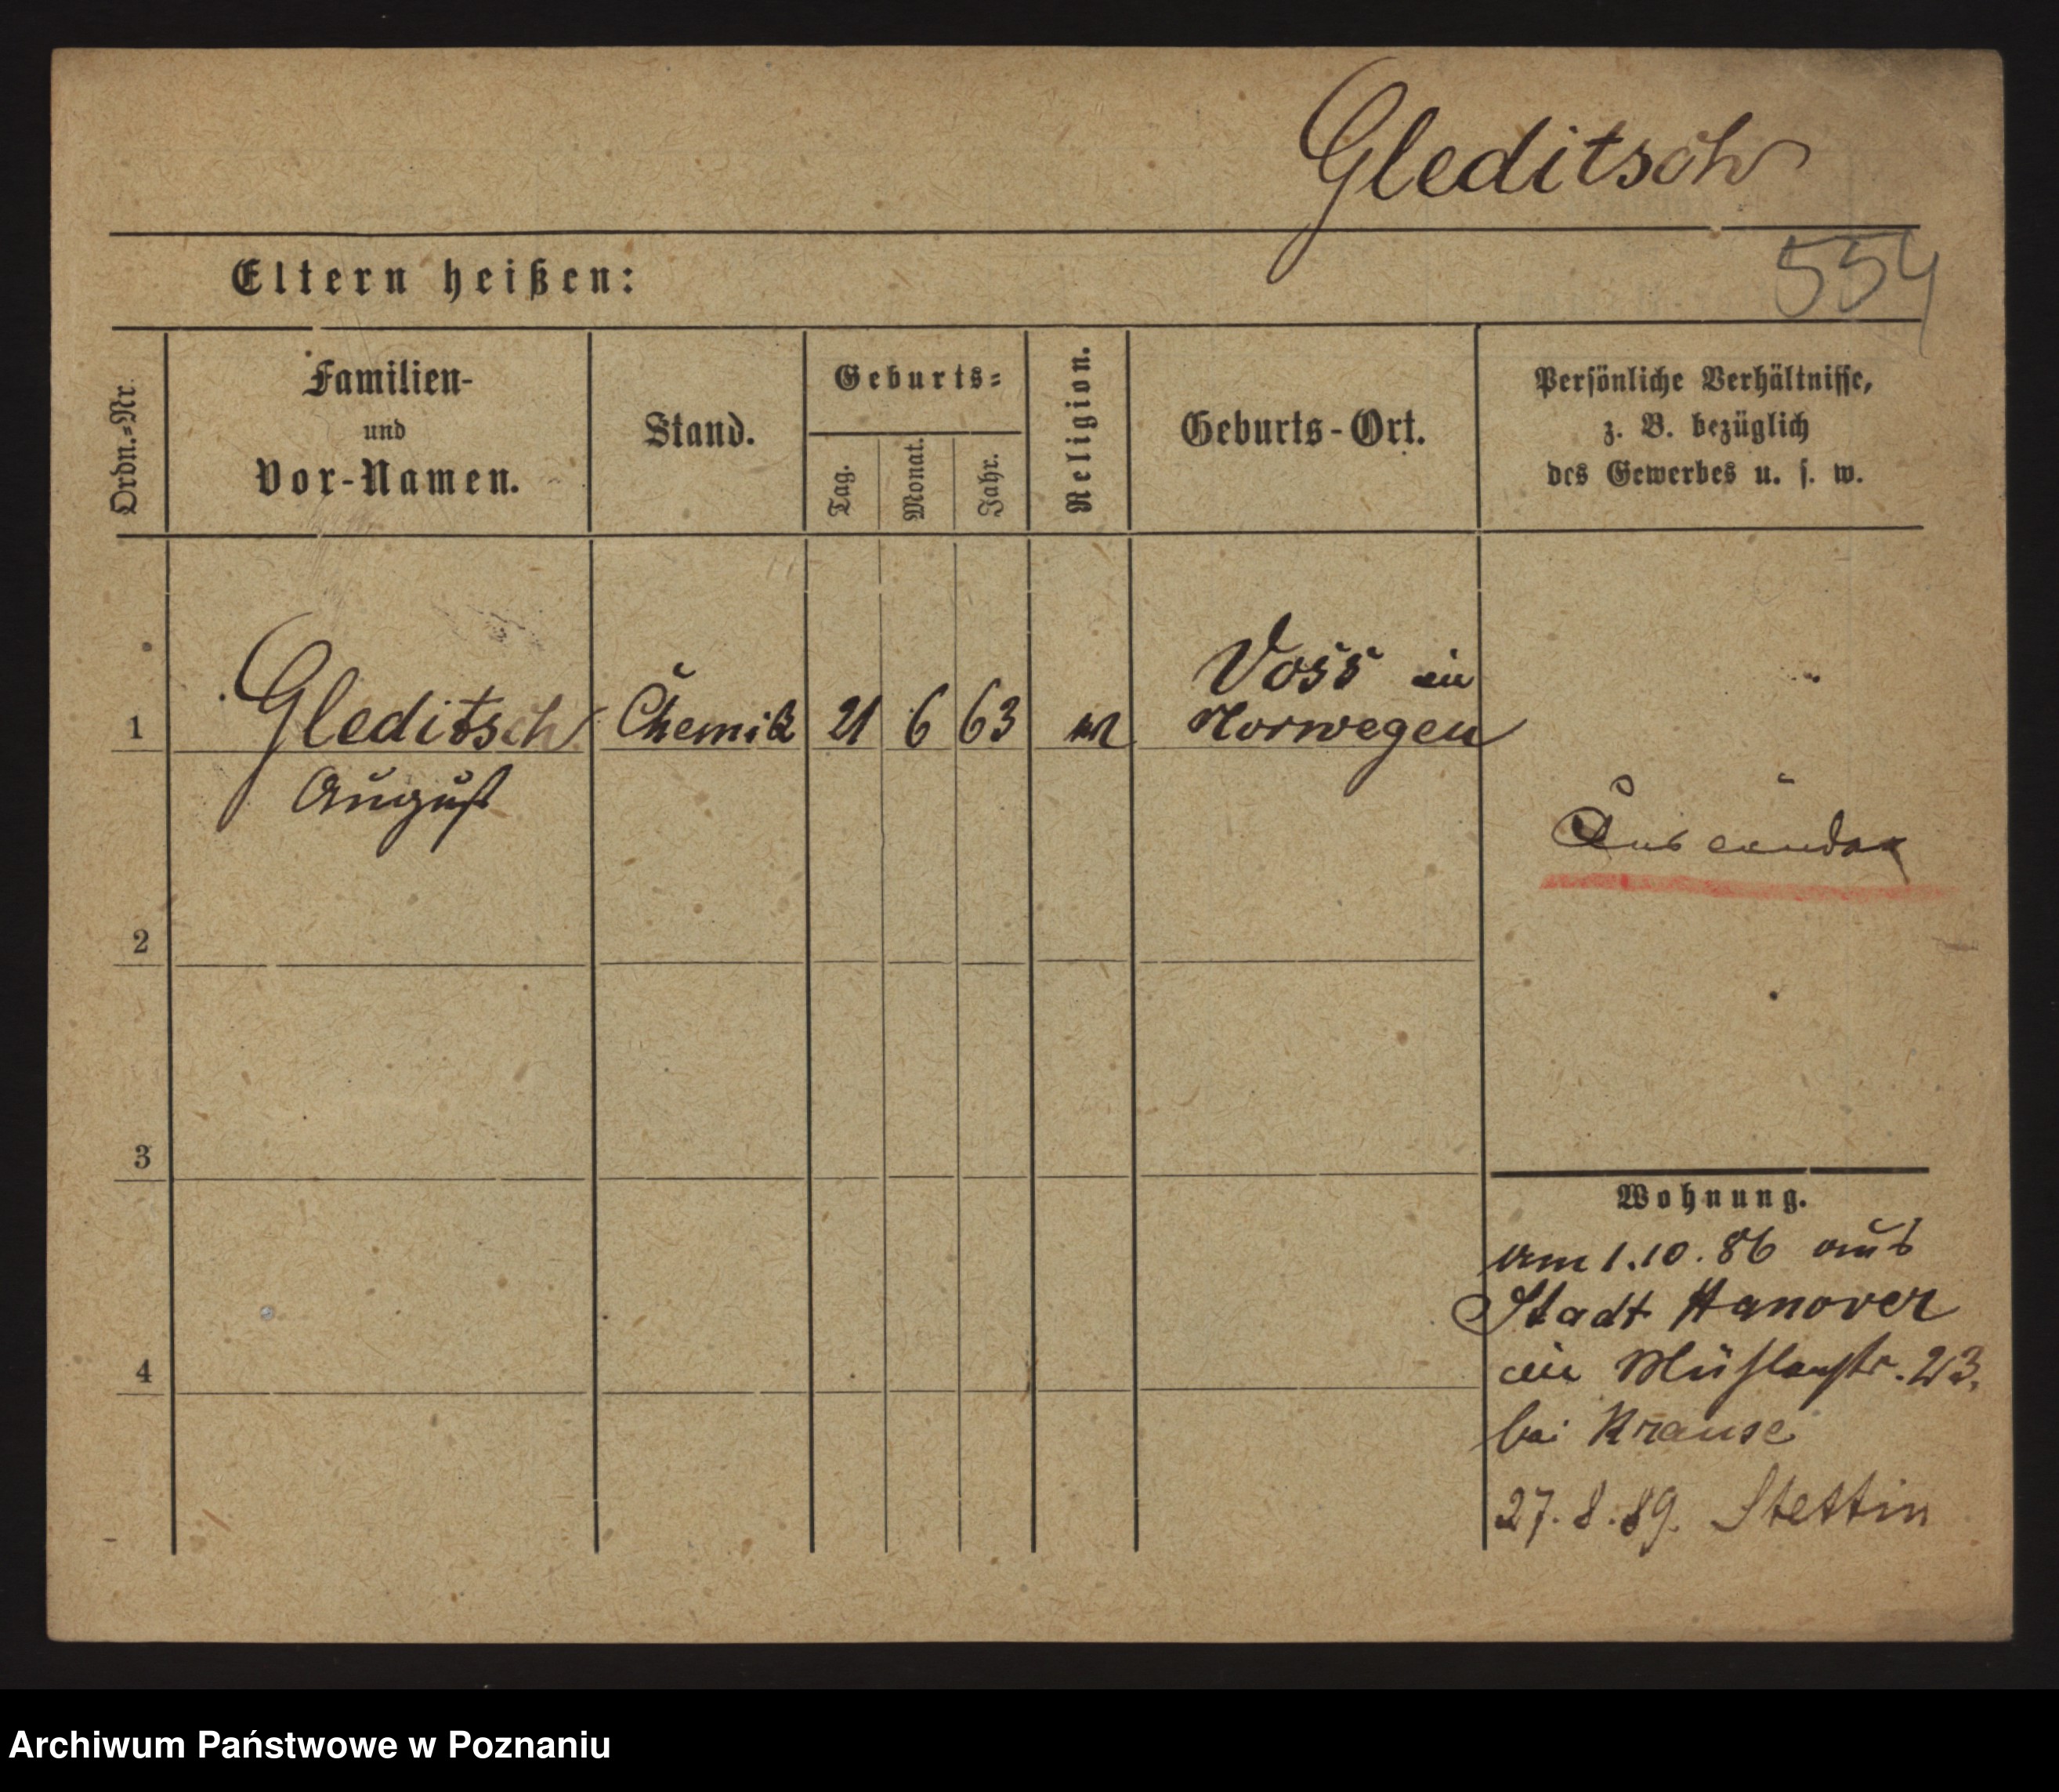 Gleditsch
554
Eltern heißen:
Ordn.=Nr.
Familien-
und
Vor-Namen.
Stand.
Geburts=
Tag.
Monat.
Jahr.
Religion.
Geburts-Ort.
Persönliche Verhältnisse,
z. B. bezüglich
des Gewerbes u. s. w.
1
Gleditsch
August
Chemik
21
6
63
Voss in
Norwegen
2
3
4
Wohnung.
am 1.10.86 aus
Stadt Hanover
in Mühlenstr. 23.
bei Krause
27.8.89. Stettin
Archiwum Państwowe w Poznaniu